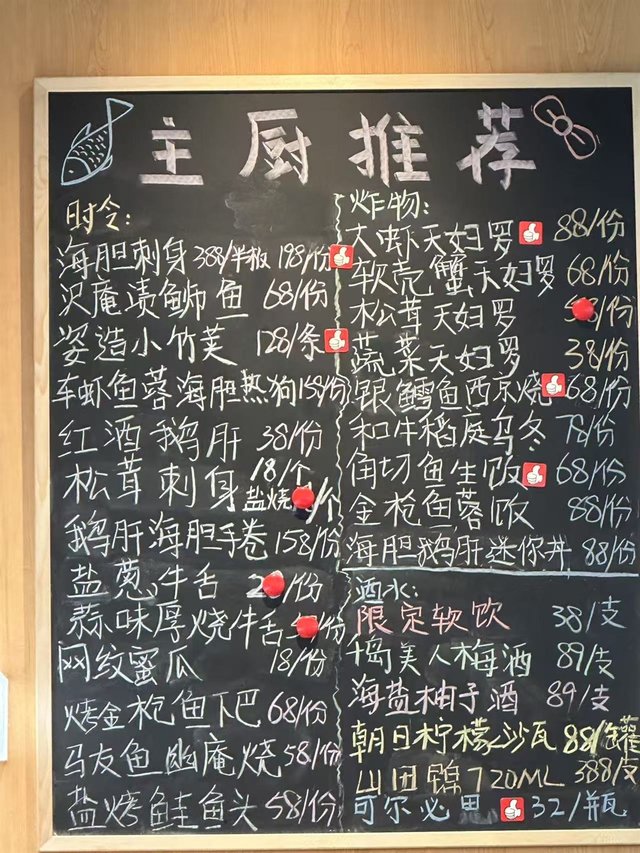 主厨推荐
时令:
海胆刺身 388/半板 198/份
沢庵渍鲫鱼 68/份
姿造小竹荚 128/条
车虾鱼蓉海胆热狗 158/份
红酒鹅肝 38/份
松茸刺身 18/个
盐烧 /个
鹅肝海胆手卷 158/份
盐葱牛舌 /份
蒜味厚烧牛舌 /份
网纹蜜瓜 18/份
烤金枪鱼下巴 68/份
马友鱼幽庵烧 58/份
盐烤鲑鱼头 58/份
炸物:
大虾天妇罗 88/份
软壳蟹天妇罗 68/份
松茸天妇罗 /份
蔬菜天妇罗 38/份
银鳕鱼西京烧 68/份
和牛稻庭乌冬 78/份
角切鱼生饭 68/份
金枪鱼蓉饭 88/份
海胆鹅肝迷你丼 88/份
酒水:
限定软饮 38/支
捣美人梅酒 89/支
海盐柚子酒 89/支
朝日柠檬沙瓦 88/罐
山田锦720ML 388/支
可尔必思 32/瓶